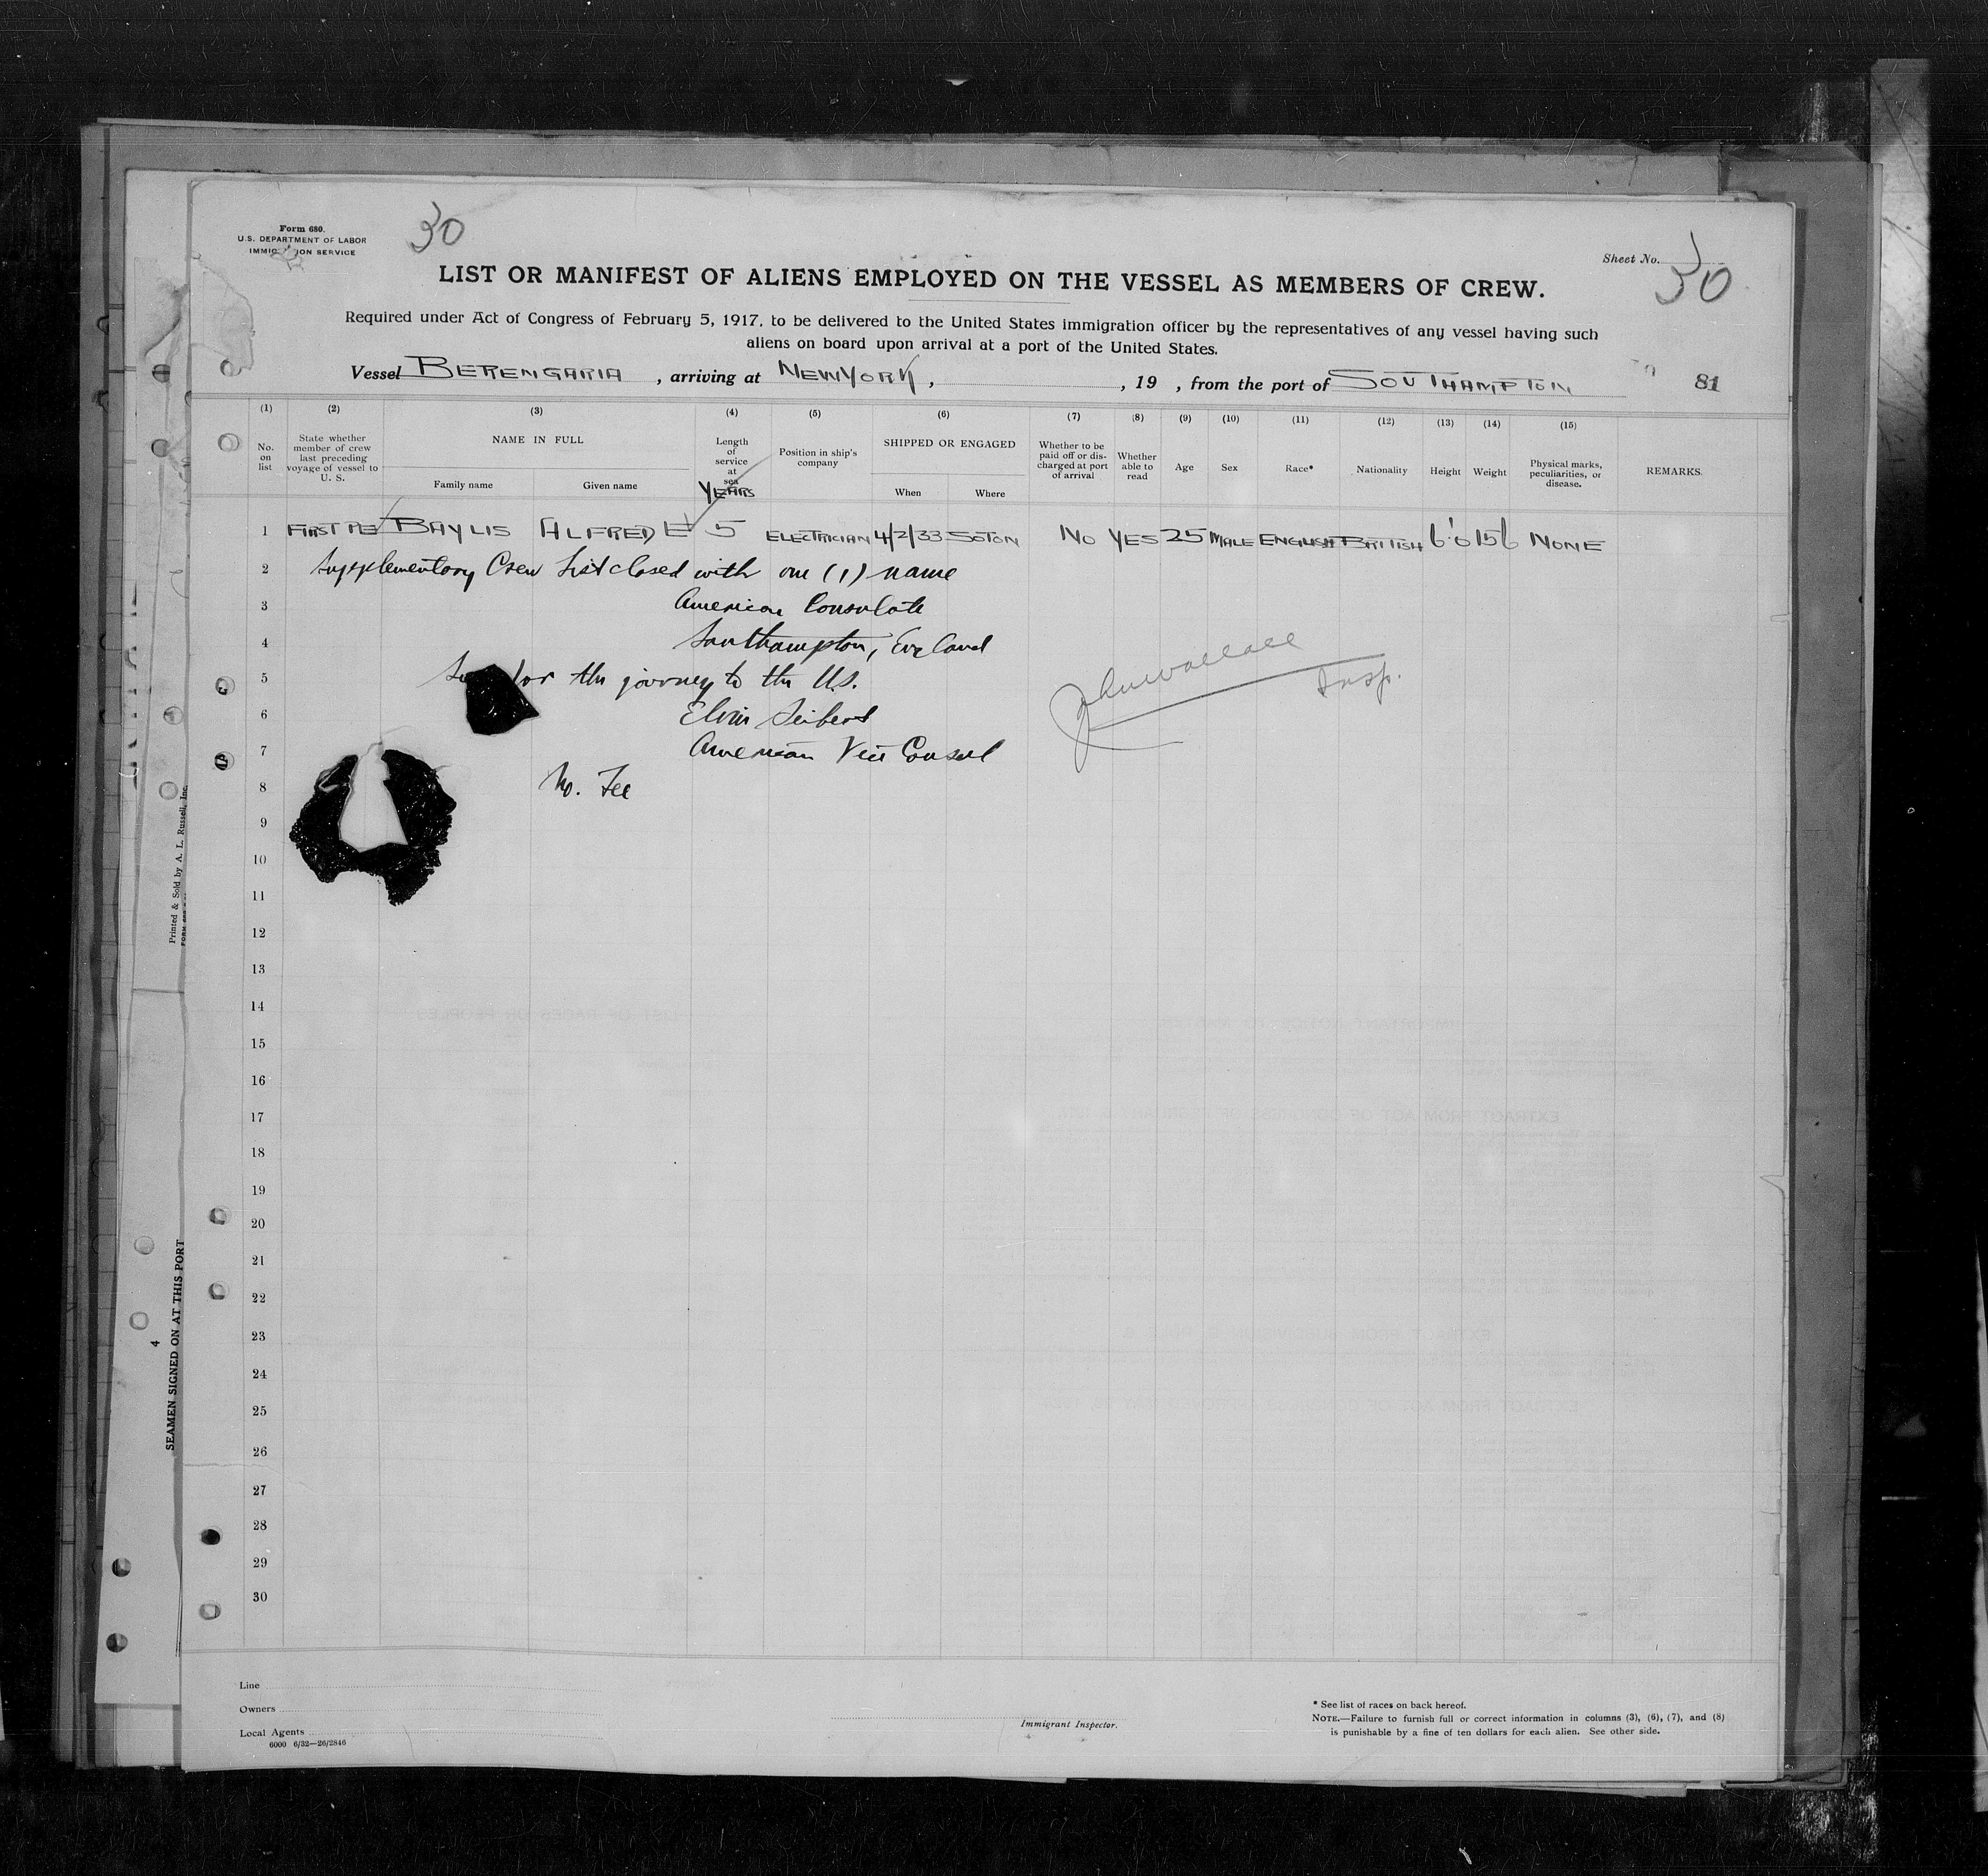 Form 680.
U.S. DEPARTMENT OF LABOR
IMMIGRATION SERVICE
30
Sheet No. 30
LIST OR MANIFEST OF ALIENS EMPLOYED ON THE VESSEL AS MEMBERS OF CREW.
Required under Act of Congress of February 5, 1917, to be delivered to the United States immigration officer by the representatives of any vessel having such
aliens on board upon arrival at a port of the United States.
Vessel BERENGARIA , arriving at NEW YORK , , 19 , from the port of SOUTHAMPTON 81
(1) (2) (3) (4) (5) (6) (7) (8) (9) (10) (11) (12) (13) (14) (15)
No. on list
State whether member of crew last preceding voyage of vessel to U. S.
NAME IN FULL
Family name Given name
Length of service at sea
YEARS
Position in ship's company
SHIPPED OR ENGAGED
When Where
Whether to be paid off or discharged at port of arrival
Whether able to read
Age
Sex
Race*
Nationality
Height
Weight
Physical marks, peculiarities, or disease.
REMARKS.
1 FIRST BAYLIS ALFRED E 5 ELECTRICIAN 4/2/33 SOTON NO YES 25 MALE ENGLISH BRITISH 6'0 156 NONE
2 Supplementary Crew List closed with one (1) name
3 American Consulate
4 Southampton, England
5 for the journey to the U.S.
John Wallace
Insp.
6 Elvin Seibert
7 American Vice Consul
8 No. Fee
9
10
11
12
13
14
15
16
17
18
19
20
21
22
23
24
25
26
27
28
29
30
Line
Owners
Local Agents
6000 6/32—26/2846
Immigrant Inspector.
* See list of races on back hereof.
NOTE.—Failure to furnish full or correct information in columns (3), (6), (7), and (8)
is punishable by a fine of ten dollars for each alien. See other side.
Printed & Sold by A. L. Russell, Inc.
4
SEAMEN SIGNED ON AT THIS PORT